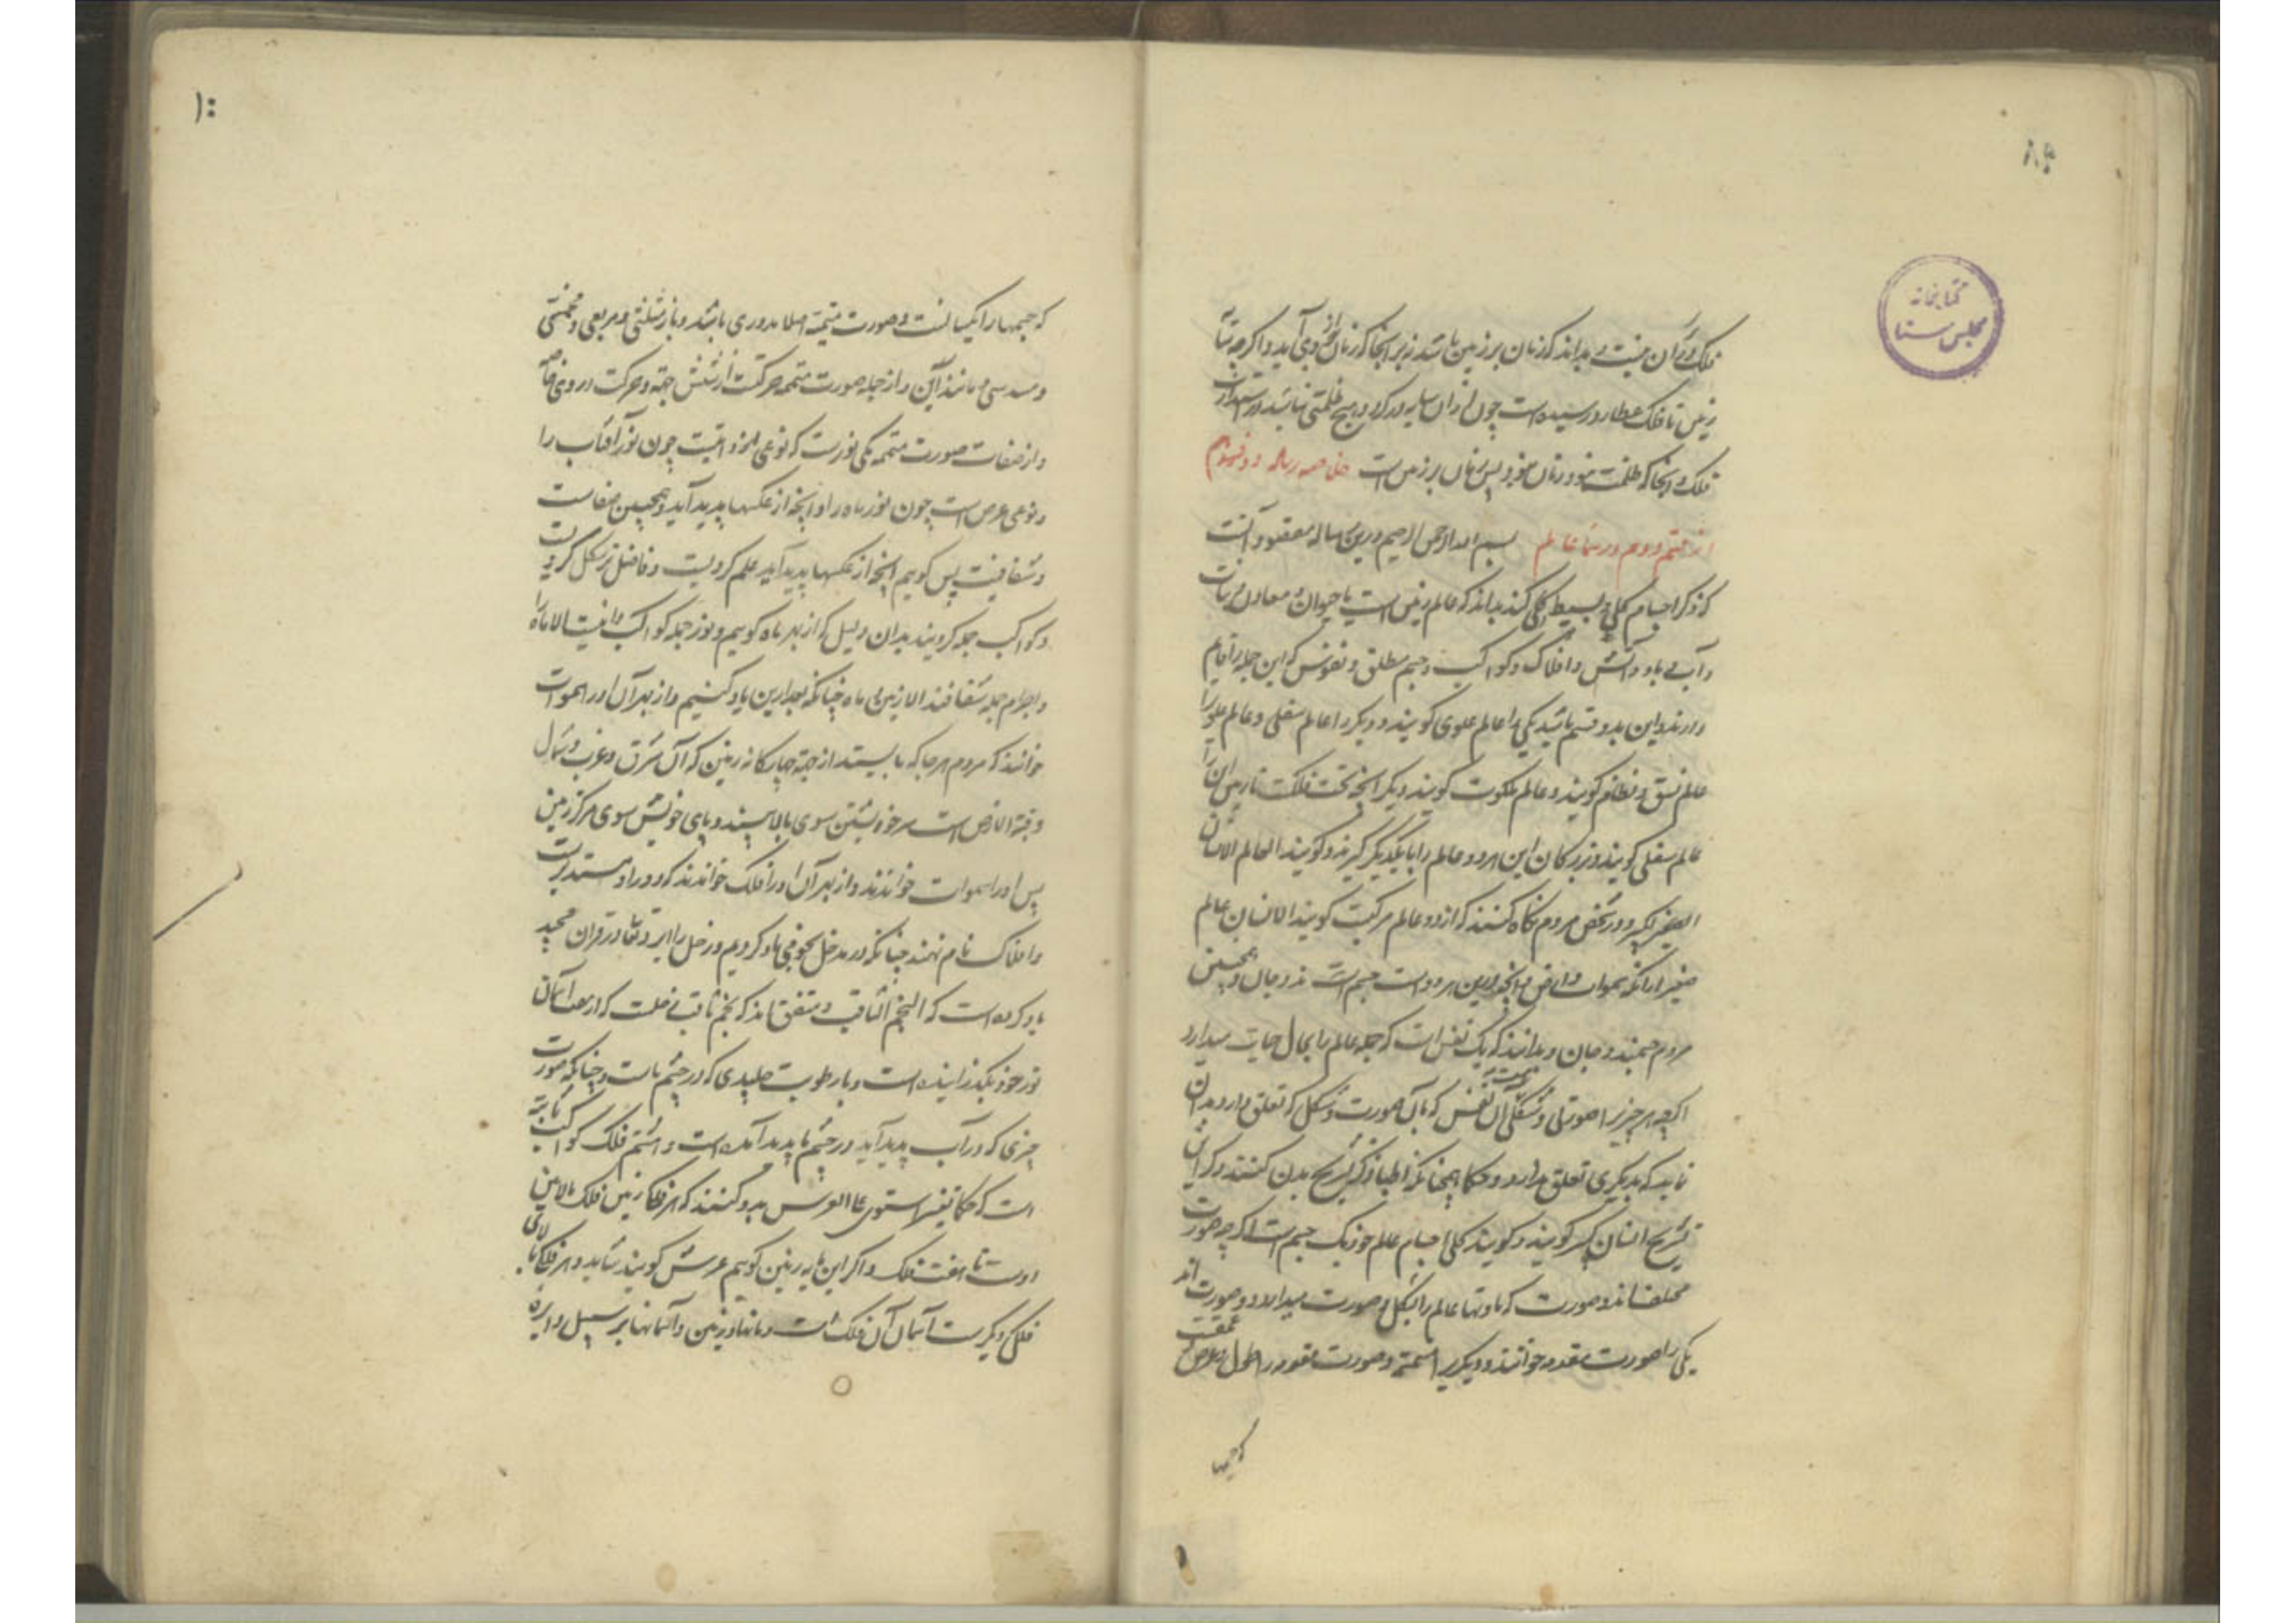 ۸۴
کتابخانه
مجلس سنا
فلک و گران نیست و بداند که زمان بر زمین باشد زیر آنجا که زمان از وی آید و اگرچه
زمین تا فلک عطارد رسیده است چون از ان سایه در گذرد هیچ ظلمتی نباشد در
فلک و آنجا که ظلمت نبود زمان نبود پس زمان بر زمین است خلاصه رساله دوم
از قسم دوم در بسم الله الرحمن الرحیم درین رساله مقصود آنست
که ذکر اجسام کلی و بسیط کلی کند بداند که عالم زمین است با حیوان و معادن و نبات
و آب و باد و آتش و افلاک و کواکب و جسم مطلق و نفوس که این جمله را قایم
دارند و این بدو قسم باشد یکی را عالم علوی گویند و دیگر را عالم سفلی و عالم علوی را
عالم نسق و نظام گویند و عالم ملکوت گویند و دیگر آنچه تحت فلکست تا زمین آن را
عالم سفلی گویند و بزرگان این هر دو عالم را با یکدیگر گیرند و گویند العالم الانسان
الکبیر و در شخص مردم نگاه کنند که از دو عالم مرکبست گویند الانسان عالم
صغیر از انکه سموات و ارض و آنچه درین هر دو است جسم است و جان و همچنین
مردم جسمند و جان و بدانند که یک نفس است که جمله عالم را بحال حیات میدارد
اگرچه هر چیز را صورتی و شکلی است آن نفس که بآن صورت و شکل که تعلق دارد بدان
نماید که بدیگری تعلق ندارد و حکما همچنانکه اطبا ذکر تشریح بدن کنند ذکر آن
تشریح انسان کبیر گویند و گویند کلی اجسام عالم خود یک جسم است اگرچه صورت
مختلف‌اند و صورت که ماوتها عالم را بشکل و صورت میدارد دو صورت‌اند
یکی را صورت مقدمه خوانند و دیگر را متممه و صورت مقومه را طول و عرض و عمقست
که جسمها
که جسمها را یکسانست و صورت متممه اصلا بدوری باشد و باز مثلثی و مربعی و مخمسی
و مسدسی و مانند این و از جمله صورت متممه حرکت از شش جهة و حرکت در وی
و از صفات صورت متممه یکی نورست که نوعی ازو ذاتیست چون نور آفتاب را
و نوعی عرض است چون نور ماه را و آنچه از عکسها پدید آید و همچنین صفاست
و شفافیت پس گوییم آنچه از عکسها پدید آید علم کرویست و فاضل‌تر شکل کرویست
و کواکب جمله کرویند بدان دلیل که از بهر ماه گوییم و نور جمله کواکب را ذاتیست الا ماه را
و اجرام جمله شفافند الا زمین و ماه چنانکه بعد ازین یاد کنیم و از بهر آن او را سموات
خوانند که مردم هر جا که بایستند از جهة چهارگانه زمین که آن شرق و غرب و شمال
و قبة الارض است سر خویشتن سوی بالا بینند و پای خویش سوی مرکز زمین
پس او را سموات خوانند و از بهر آن او را فلک خواندند که دور او مستدیرست
و افلاک نام نهند چنانکه در مدخل نجومی یاد کردیم و زحل را ایزد تعالی در قران مجید
یاد کرده است که النجم الثاقب و متفق‌اند که نجم ثاقب زحلست که از بعد آسمان
نور خود بگذرانیده است و با رطوبت جلیدی که در چشم ماست و چنانکه صورت
چیزی که در آب پدید آید در چشم ما پدید آمده است و هشتم فلک کواکب ثابته
است که حکما تفسیر استوی علی العرش بدو کنند که هر فلکی زمین فلک بالایین
اوست تا هفت فلک و اگر این پایه زمین گوییم عرش گویند شاید و هر فلک که بالای
فلکی دیگرست آسمان آن فلک است و مانند زمین و آسمانها بر سبیل دایره